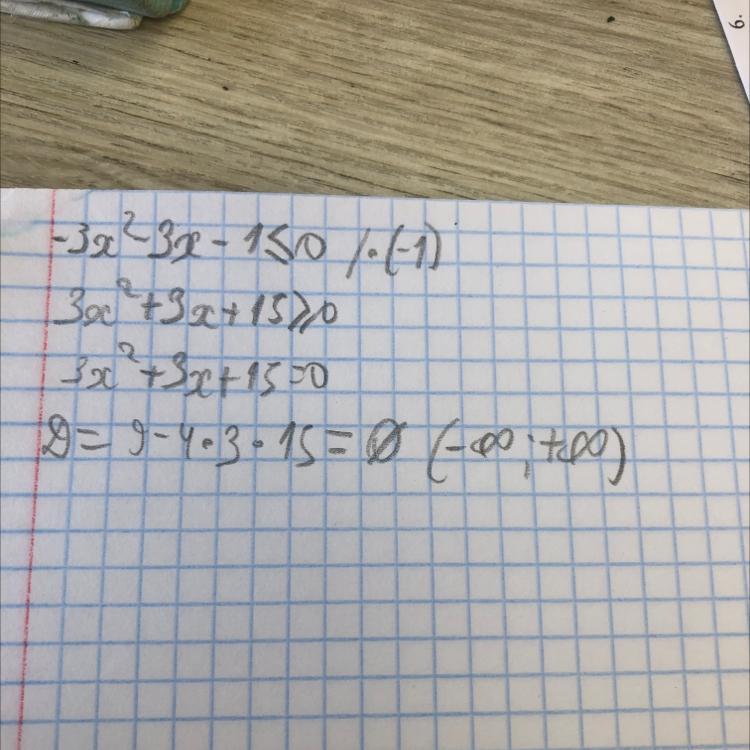 6.
-3x²-3x - 1 ≤ 0 /·(-1)
3x²+3x+15⩾0
3x²+3x+15=0
D = 9-4·3·15 = Ø (-∞;+∞)